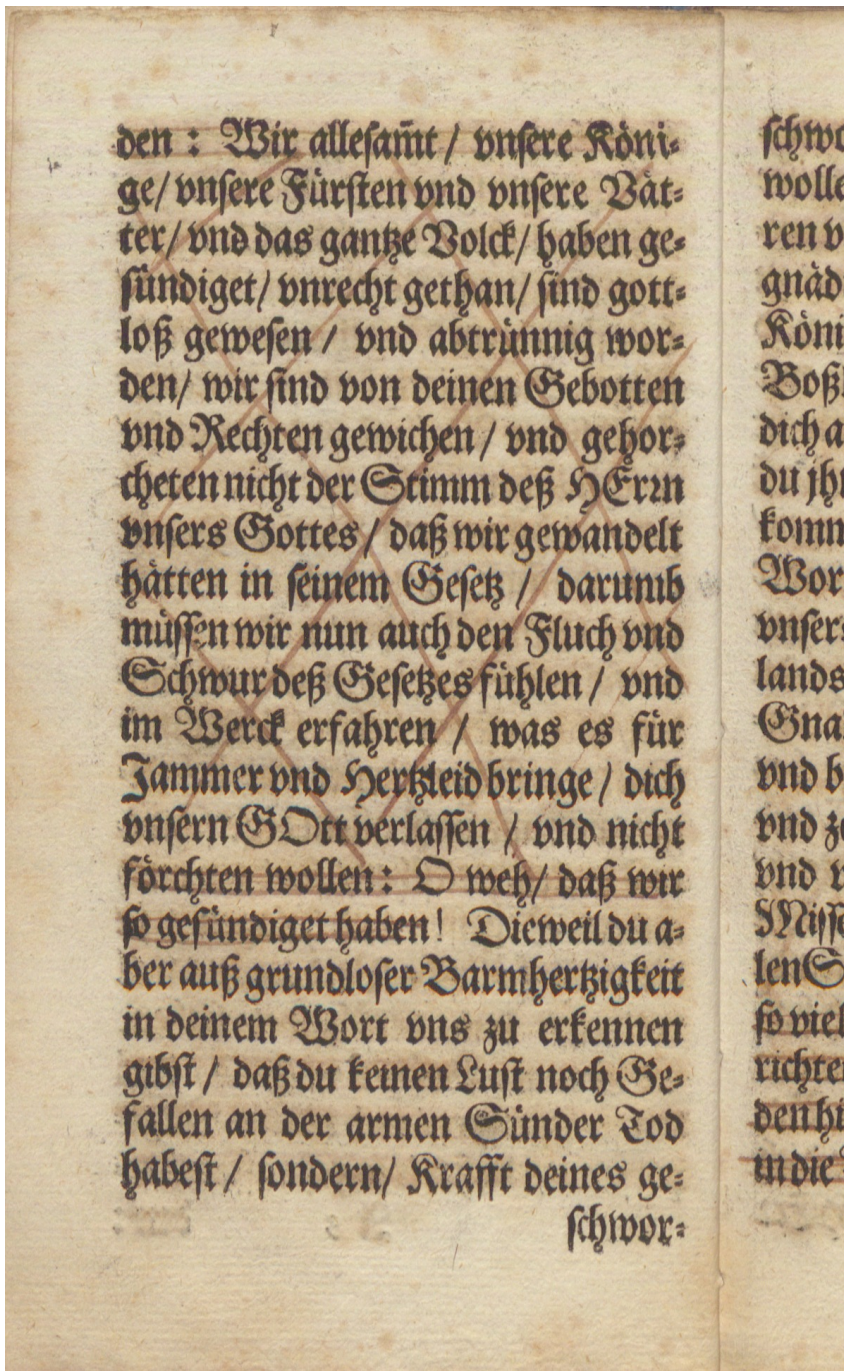 den : Wir allesam̃t / vnsere Köni-
ge/ vnsere Fürsten vnd vnsere Vät-
ter/ vnd das gantze Volck/ haben ge-
sündiget/ vnrecht gethan/ sind gott-
loß gewesen / vnd abtrünnig wor-
den/ wir sind von deinen Gebotten
vnd Rechten gewichen / vnd gehor-
cheten nicht der Stimm deß HErꝛn
vnsers Gottes / daß wir gewandelt
hätten in seinem Gesetz / darumb
müssen wir nun auch den Fluch vnd
Schwur deß Gesetzes fühlen / vnd
im Werck erfahren / was es für
Jammer vnd Hertzleid bringe / dich
vnsern GOtt verlassen / vnd nicht
förchten wollen: O weh/ daß wir
so gesündiget haben! Dieweil du a-
ber auß grundloser Barmhertzigkeit
in deinem Wort vns zu erkennen
gibst / daß du keinen Lust noch Ge-
fallen an der armen Sünder Tod
habest / sondern/ Krafft deines ge-
schwor-
schwo
wolle
ren v
gnäd
Köni
Boßh
dich a
du jhn
komm
Wor
vnser
lands
Gna
vnd b
vnd z
vnd
Misse
len S
so viel
richte
den hi
in die